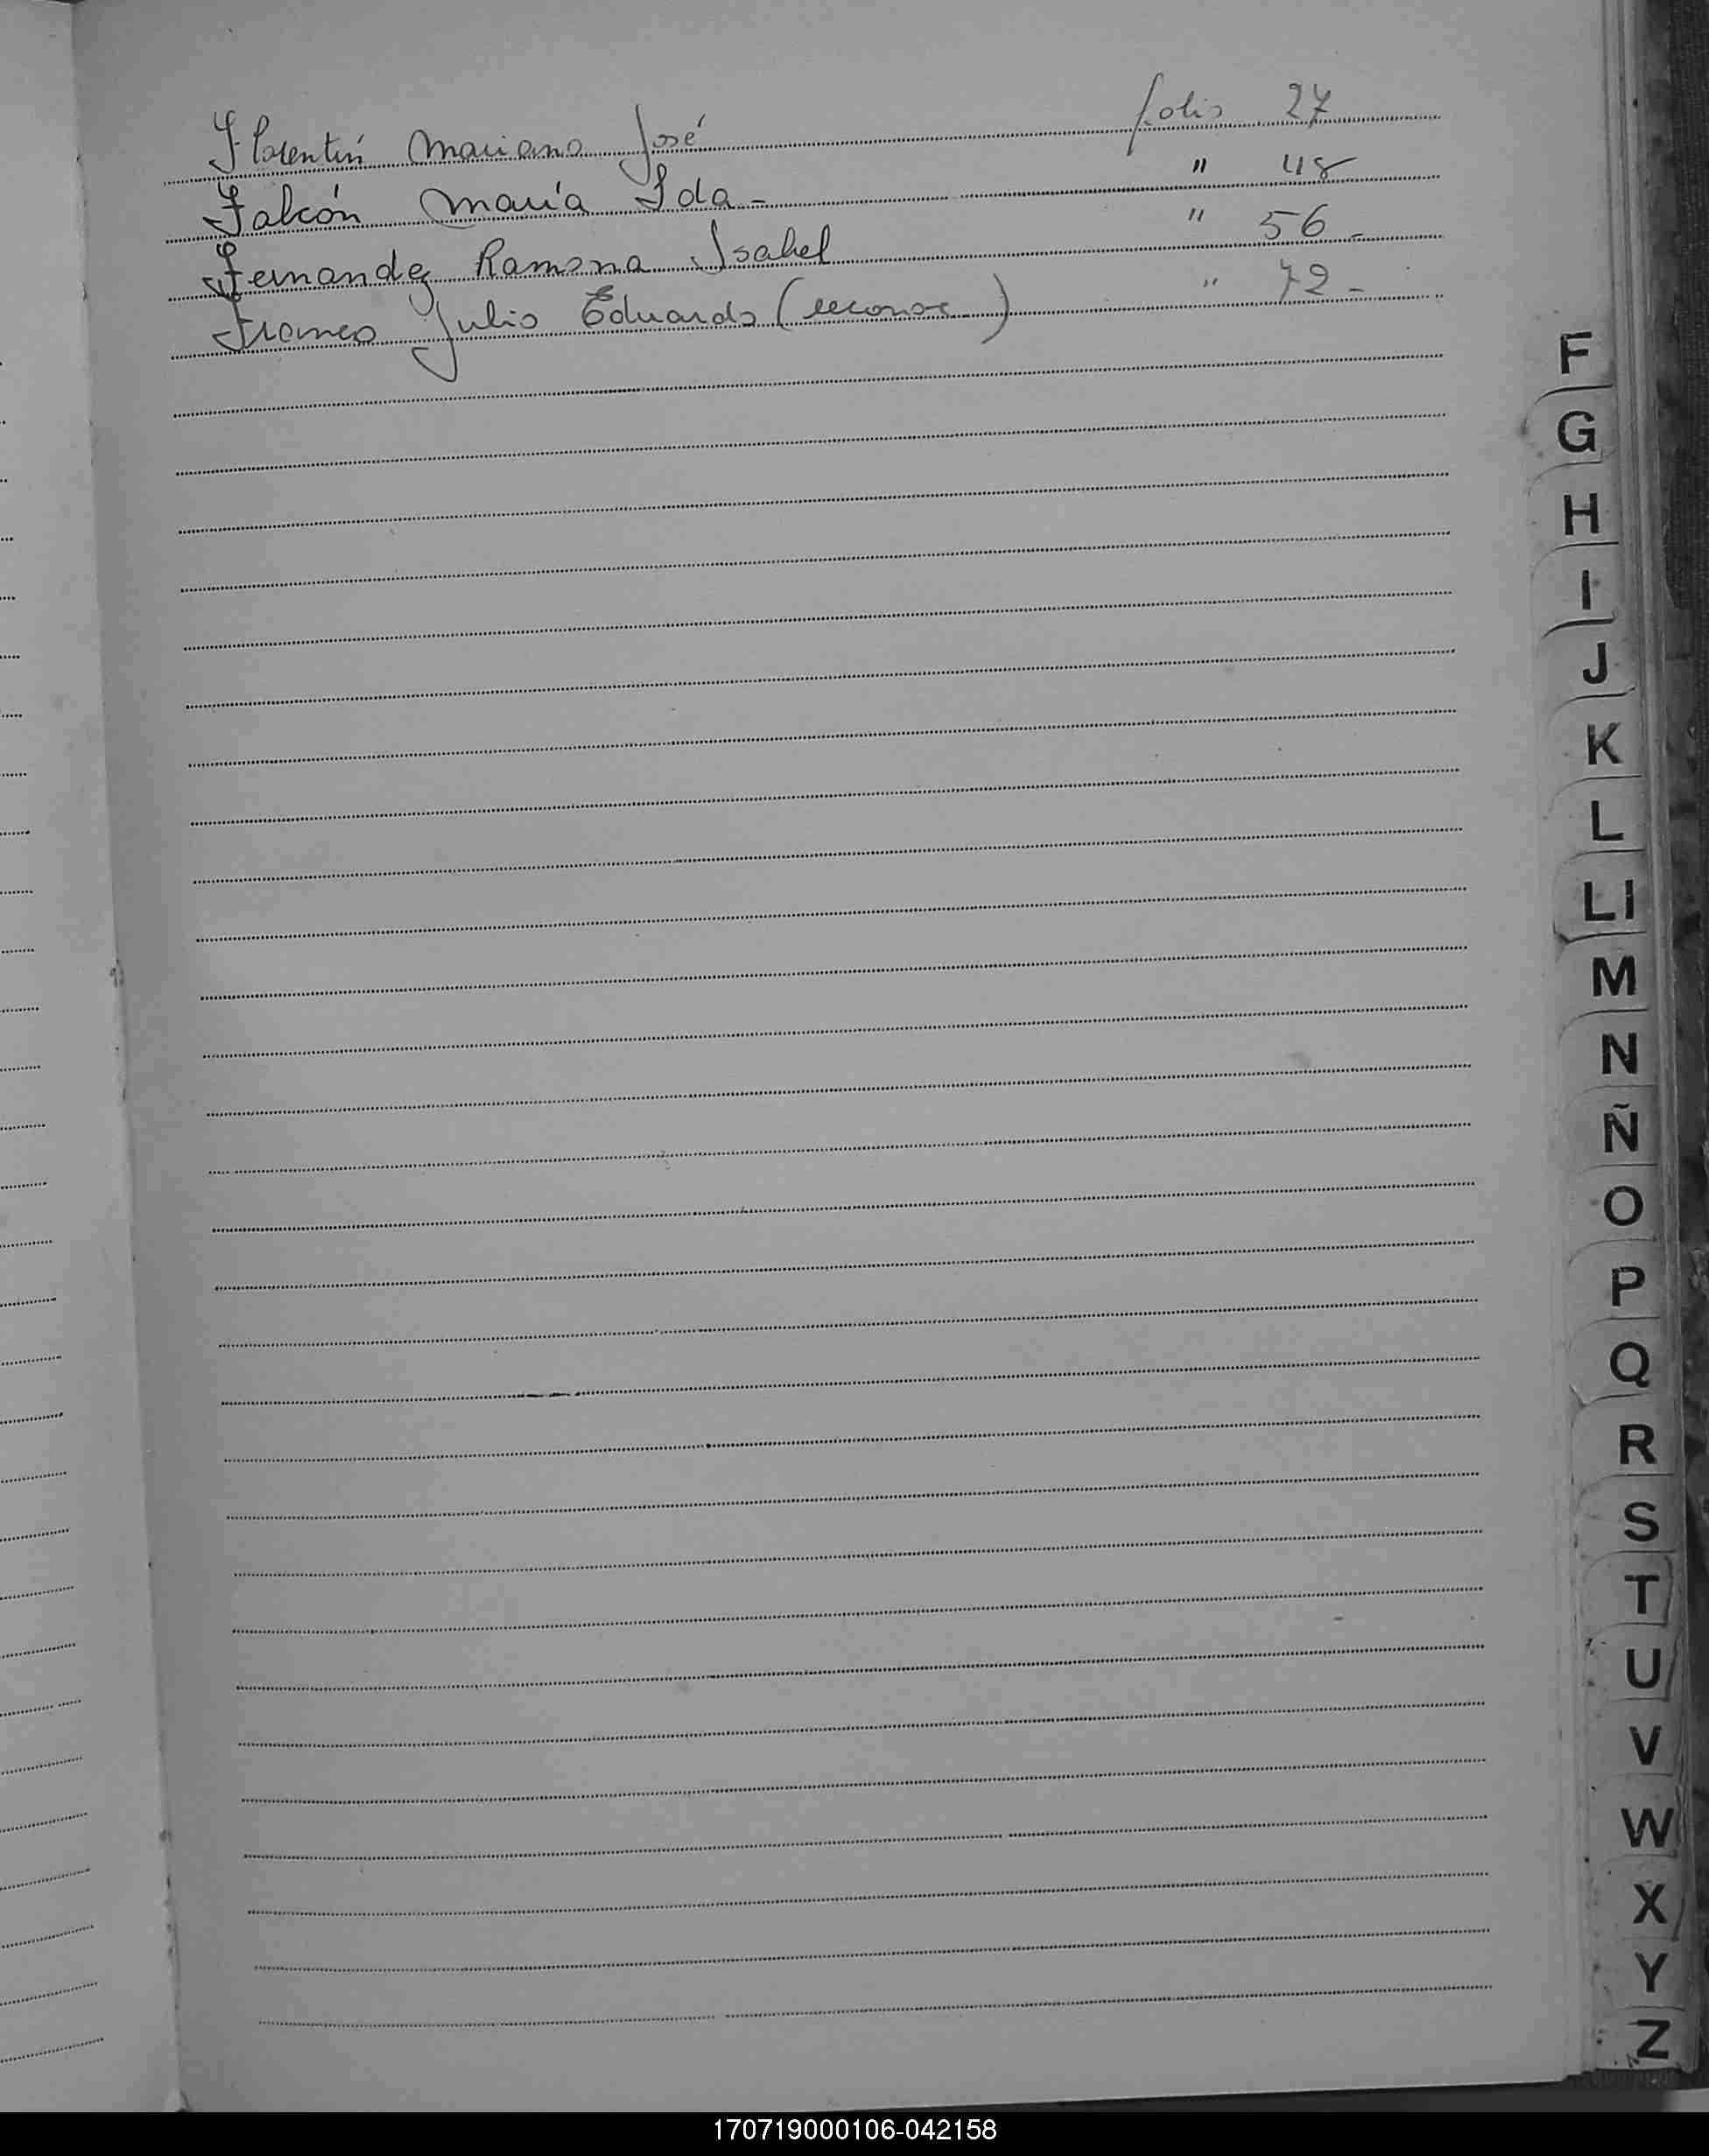 Florentín Mariano José folio 27
Falcón María Ida - " 48
Fernandez Ramona Isabel " 56 -
Franco Julio Eduardo (reconoc.) " 72 -
F
G
H
I
J
K
L
Ll
M
N
Ñ
O
P
Q
R
S
T
U
V
W
X
Y
Z
170719000106-042158